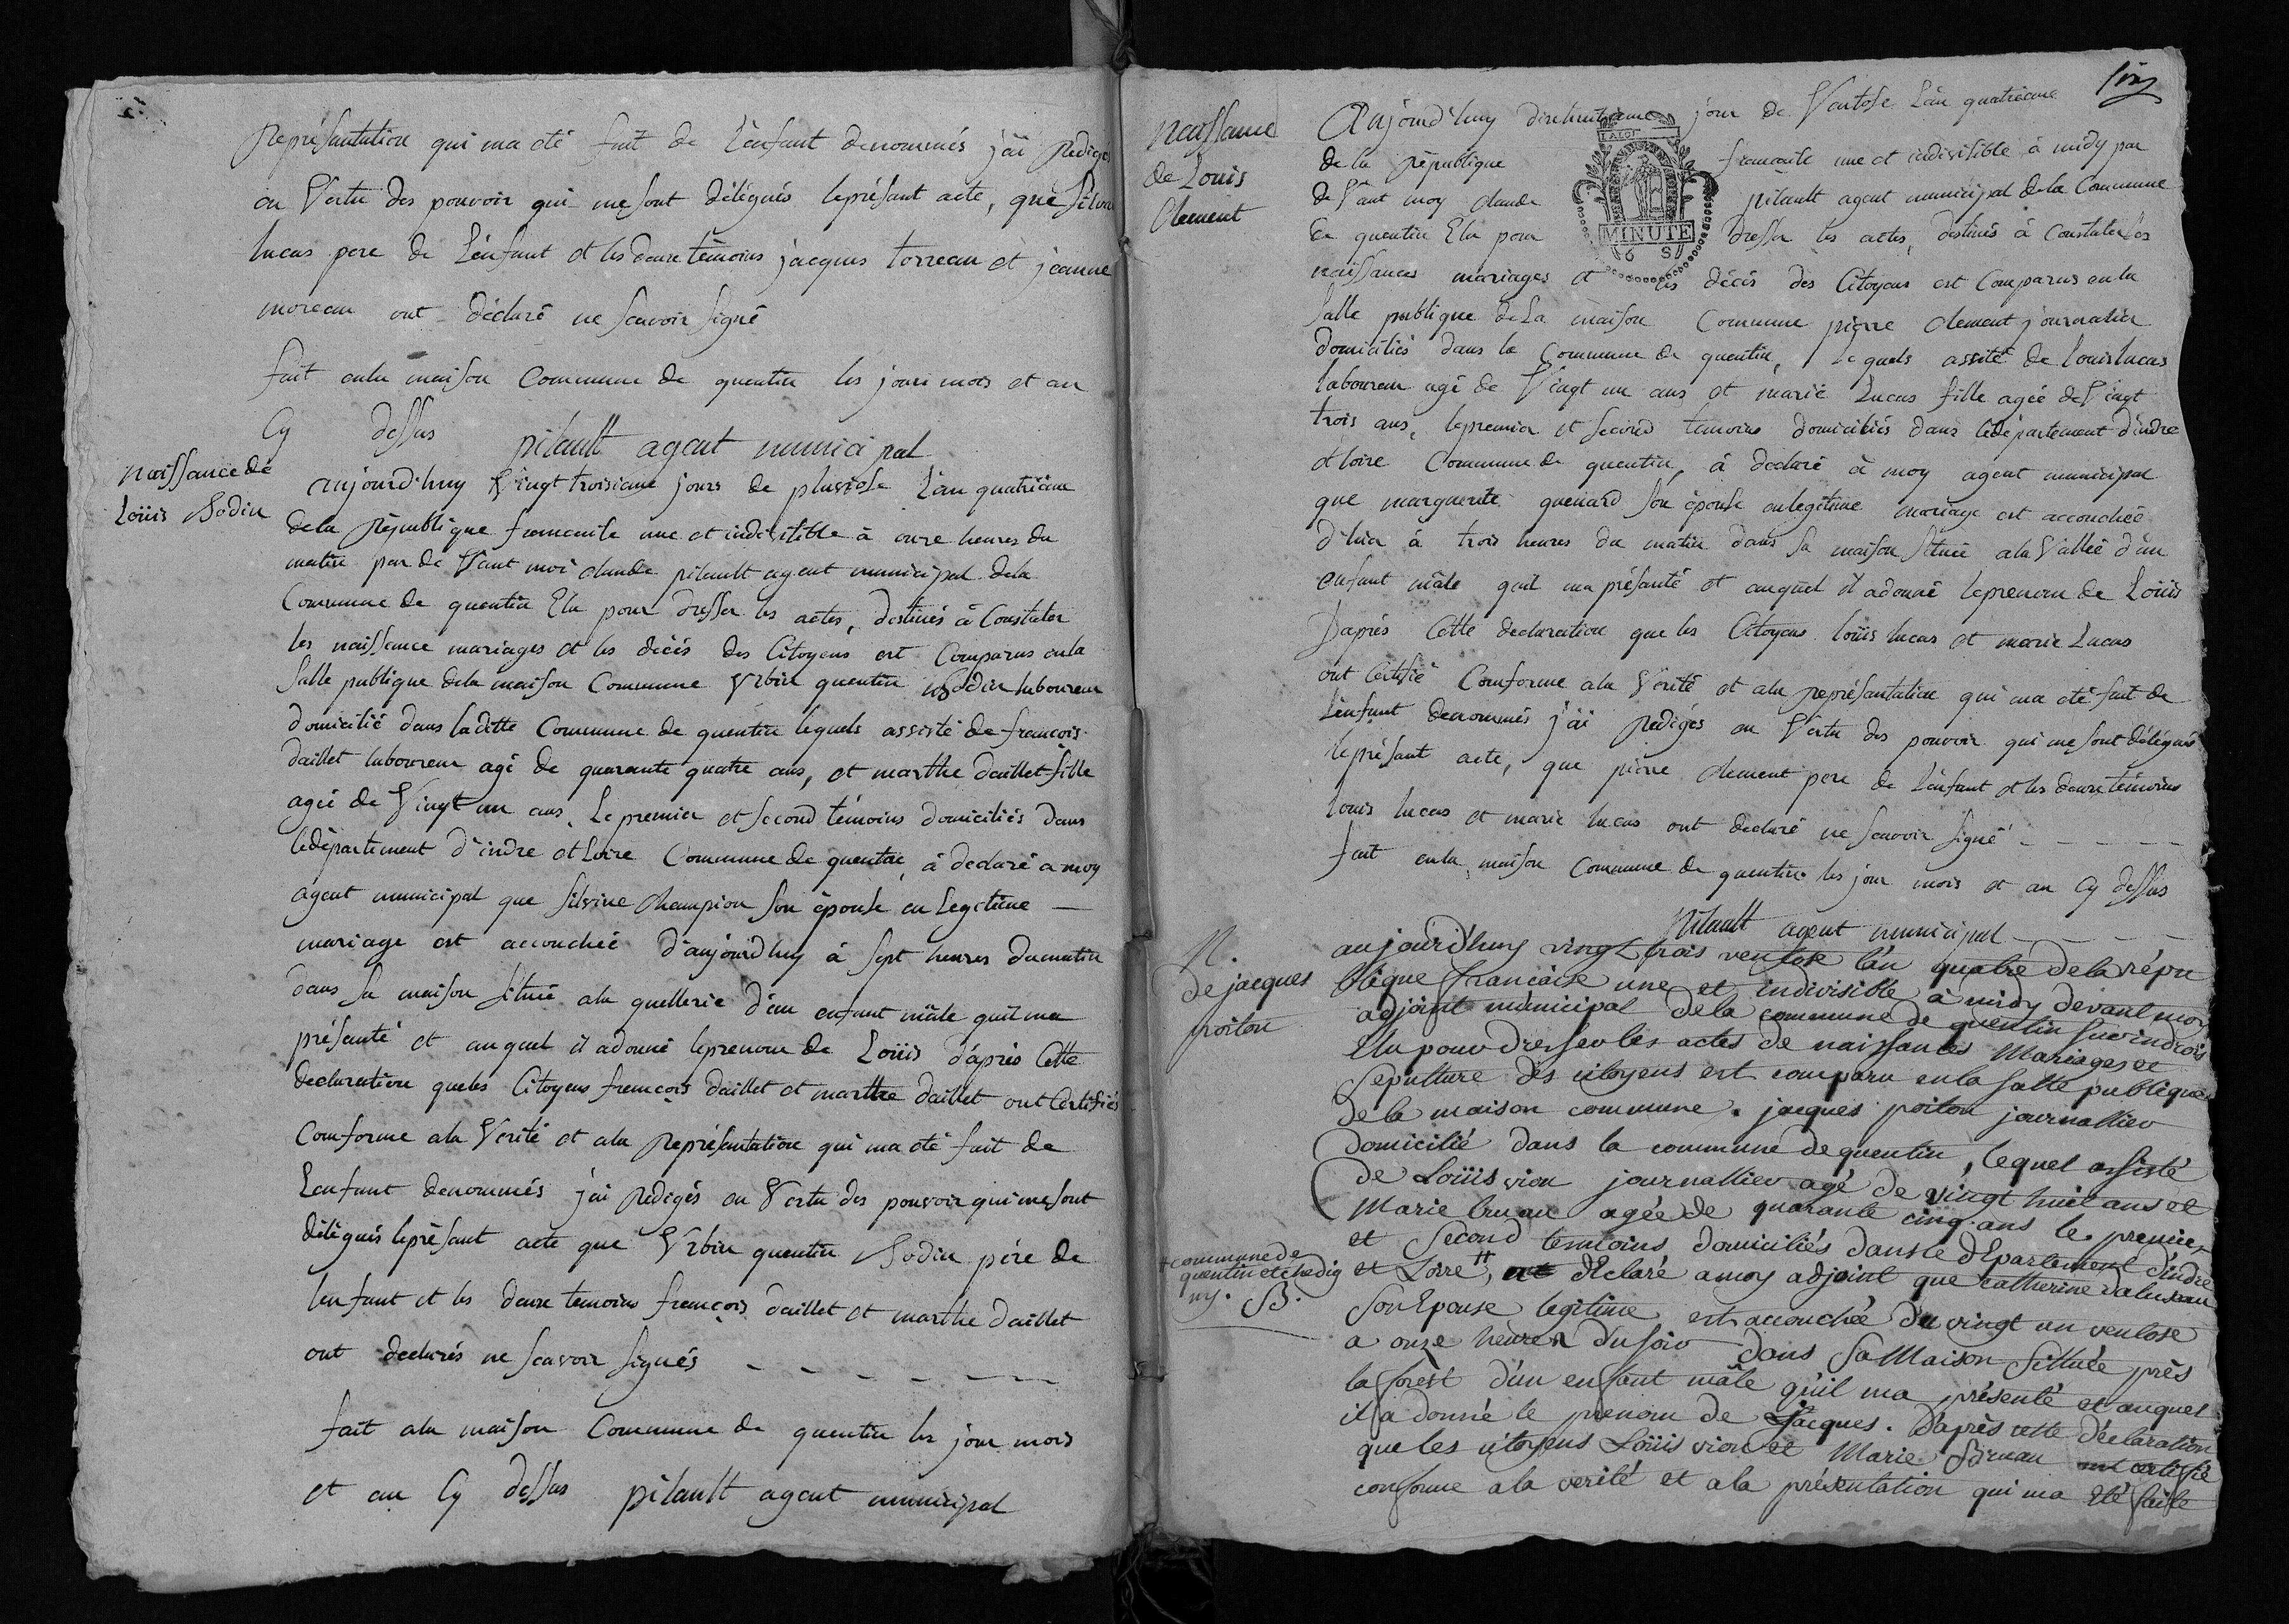 Représantation qui ma été fait de L'enfant denommés j'ai Rediges
en Vertu des pouvoir qui me sont délégués leprésant acte, que Silvain
lucas pere de L'énfant et les deux témoins jacques torreau et jeanne
moreau ont déclaré ne scavoir signé
fait enla maison Commune de quentin les jour mois et an
Cy dessus
pilault agent municipal
naissance de
Loüis Bodin
aujourd'huy Vingt troisieme jours de pluviose L'an quatrième
dela République francaise une et indivisible à onze heures du
matin par de Vant moi claude pilault agent municipal dela
Commune de quentin Elu pour dresser les actes, destinés à Constater
les naissance mariages et les décès des Citoyens est Comparus enla
Salle publique dela maison Commune Vrbin quentin Bodin laboureur
domicilié dans laditte Commune de quentin lequels assisté de francois
daillet laboureur agé de quarante quatre ans, et marthe daillet fille
agée de Vingt un ans, Le premier et second témoins domiciliés dans
ledépartement d'indre et Loire Commune de quentin, à declaré a moy
agent municipal que silvine Champion son épouse en Legitime
mariage est accouchée d'aujourd'huy à sept heures dumatin
dans sa maison située ala quellerie d'un enfant mâle quil ma
présanté et auquel il adonné leprenom de Loüis d'après Cette
declaration queles Citoyens francois daillet et marthe daillet ont Certifiés
Conforme ala Verité et ala Représantation qui ma été fait de
Lenfant denommés j'ai Redigés en Vertu des pouvoir qui me sont
délégués leprésant acte que Vrbin quentin Bodin père de
lenfant et les deux temoins francois daillet et marthe daillet
ont declarés ne scavoir signés
fait ala maison Commune de quentin les jour mois
et an Cy dessus pilault agent municipal
naissance
de Louis
Clement
Aujourd'huy dixhuitieme jour de Vantose L'an quatrieme
de la République francaise une et indivisible à midy par
de Vant moy claude pilault agent municipal dela Commune
de quentin Elu pour dresser les actes, destinés à Constater les
MINUTE
naissances mariages et les décès des Citoyens est Comparus enla
Salle publique deLa maison Commune pierre Clement journalier
domiciliés dans la Commune de quentin, lequels assité de Louis Lucas
laboureur agé de Vingt un ans et marie Lucas fille agée de Vingt
trois ans, lepremier et second temoins domiciliés dans ledépartement d'indre
et loire Commune de quentin, à declaré à moy agent municipal
que marguerite quenard son épouse enlegitime mariage est accouchée
d'hier à trois heures du matin dans sa maison située ala Vallée d'un
enfant mâle quil ma présanté et auquel il adonné leprenom de Loüis
D'après Cette declaration que les Citoyens loüis lucas et marie Lucas
ont Certifié Conforme ala Vérité et ala représantation qui ma été fait de
L'énfant denommés j'ai Redigés en Vertu des pouvoir qui me sont délégués
leprésant acte, que pierre Clement pere de L'énfant et les deux témoins
Louis lucas et marie lucas ont declaré ne scavoir signé
fait enla maison Commune de quentin les jour mois et an Cy dessus
Pilault agent municipal
N.
de jacques
poitou
aujourd'huy vingt trois ventose l'an quatre dela répu
blique francaise une et indivisible à midy devant moy
adjoint municipal dela commune de quentin sur indrois
Elu pour dresser les actes de naissances Mariages et
sepulture des citoyens est comparu enla salle publique
de la maison commune. jacques poitou journallier
domicilié dans la commune de quentin, lequel assisté
de Loüis vion journallier agé de vingt huit ans et
Marie bruau agée de quarante cinq ans le premier
et second temoins domiciliés dans le dEpartement d'indre
+ commune de
quentin et chedig
ny. B.
et Loire ⧺, dEclaré a moy adjoint que catherine daluseau
son Epouse legitime est accouchée du vingt un ventose
a onze heures du soir dans sa Maison sittuée près
la forêt d'un enfant mâle qu'il ma présenté et auquel
il a donné le prenom de Jacques. D'après cette déclaration
que les citoyens Loüis vion et Marie Bruau ont certifié
conforme a la verité et a la présentation qui ma Eté faite